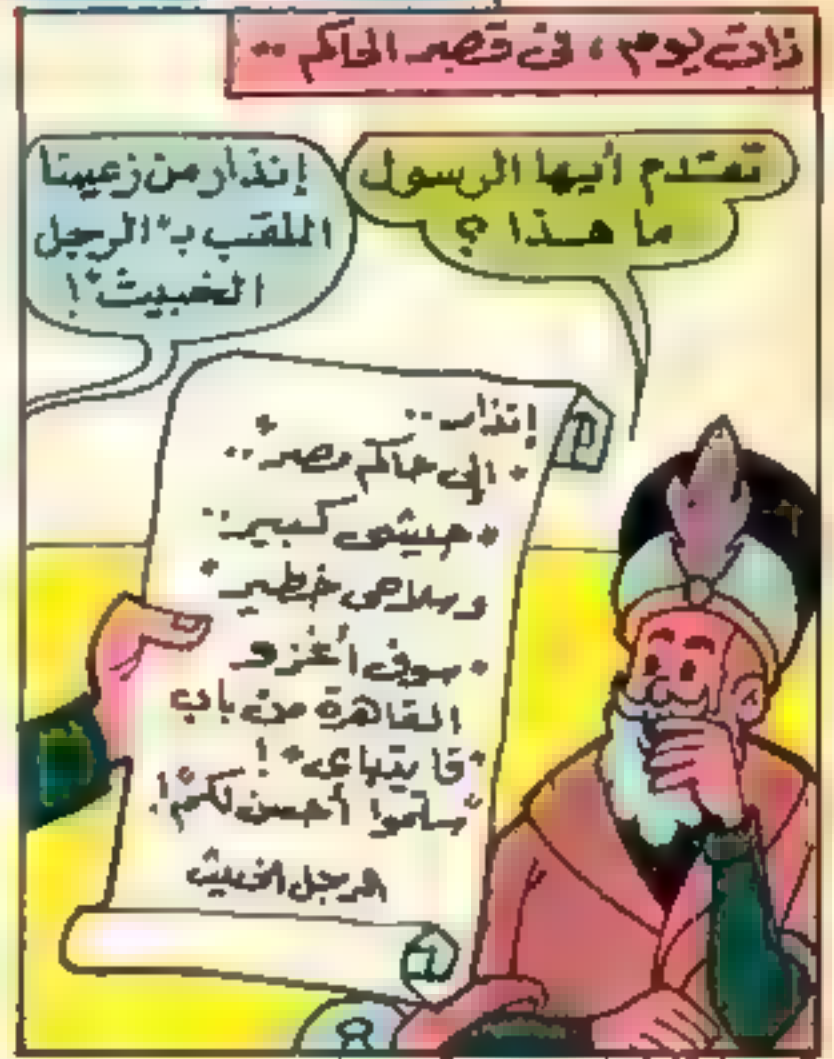 ذات يوم ، فى قصر الحاكم ..
تقدم أيها الرسول
ما هذا ؟
إنذار من زعيمنا
الملقب بـ "الرجل
الخبيث" !
إنذار ..
• إلى حاكم مصر ..
• جيشى كبير ..
وسلاحى خطير •
• سوف أغزو
القاهرة من باب
"قايتباى" !
"سلموا أحسن لكم" !
الرجل الخبيث
8